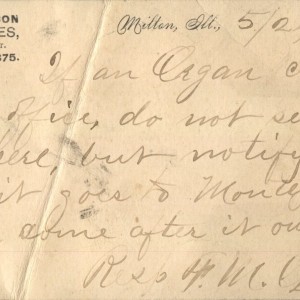 SON
ES,
T.
875.
Milton, Ill., 5/2
If an Organ c
office, do not se
here, but notify
it goes to Monte
come after it ou
Resp F. M.